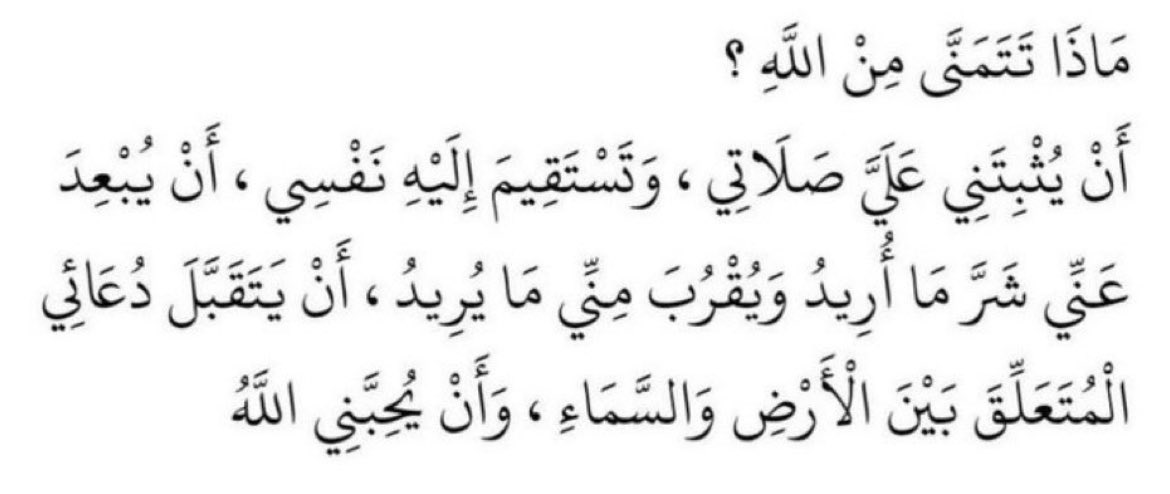 مَاذَا تَتَمَنَّى مِنْ اللَّهِ ؟
أَنْ يُثْبِتَنِي عَلَيَّ صَلَاتِي ، وَتَسْتَقِيمَ إِلَيْهِ نَفْسِي ، أَنْ يُبْعِدَ
عَنِّي شَرَّ مَا أُرِيدُ وَيُقْرُبَ مِنِّي مَا يُرِيدُ ، أَنْ يَتَقَبَّلَ دُعَائِي
الْمُتَعَلِّقَ بَيْنَ الْأَرْضِ وَالسَّمَاءِ ، وَأَنْ يُحِبَّنِي اللَّهُ